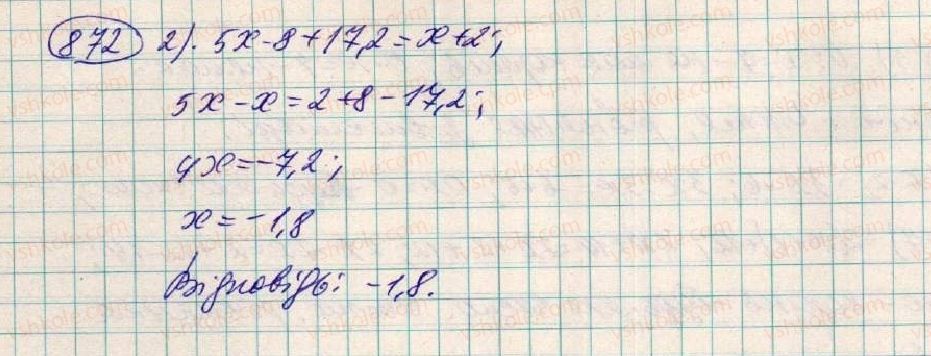 872 2). 5x-8+17,2=x+2;
5x-x=2+8-17,2;
4x=-7,2;
x=-1,8
Відповідь: -1,8.